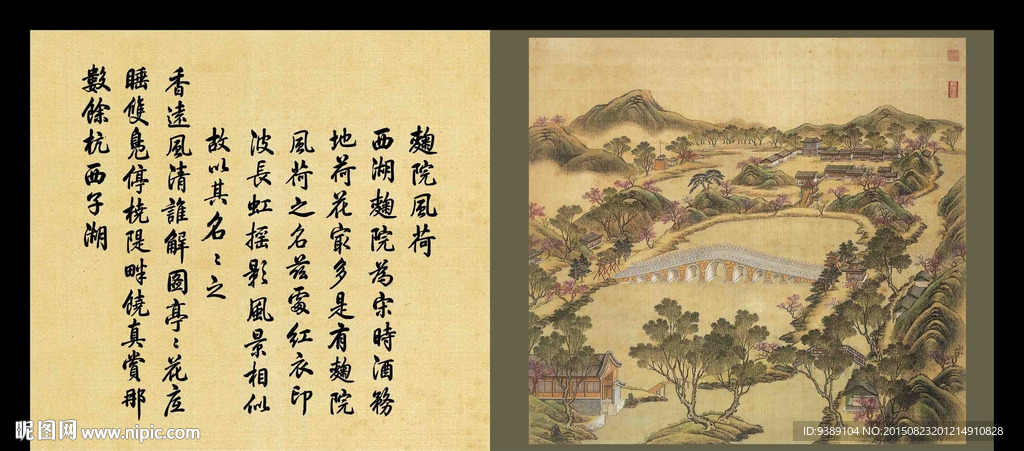 麯院風荷
西湖麯院為宋時酒務
地荷花寂多是有麯院
風荷之名茲處紅衣印
波長虹搖影風景相似
故以其名〻之
香遠風清誰解圖亭〻花底
睡雙鳧停橈隄畔饒真賞那
數餘杭西子湖
昵图网 www.nipic.com
ID:9389104 NO:20150823201214910828